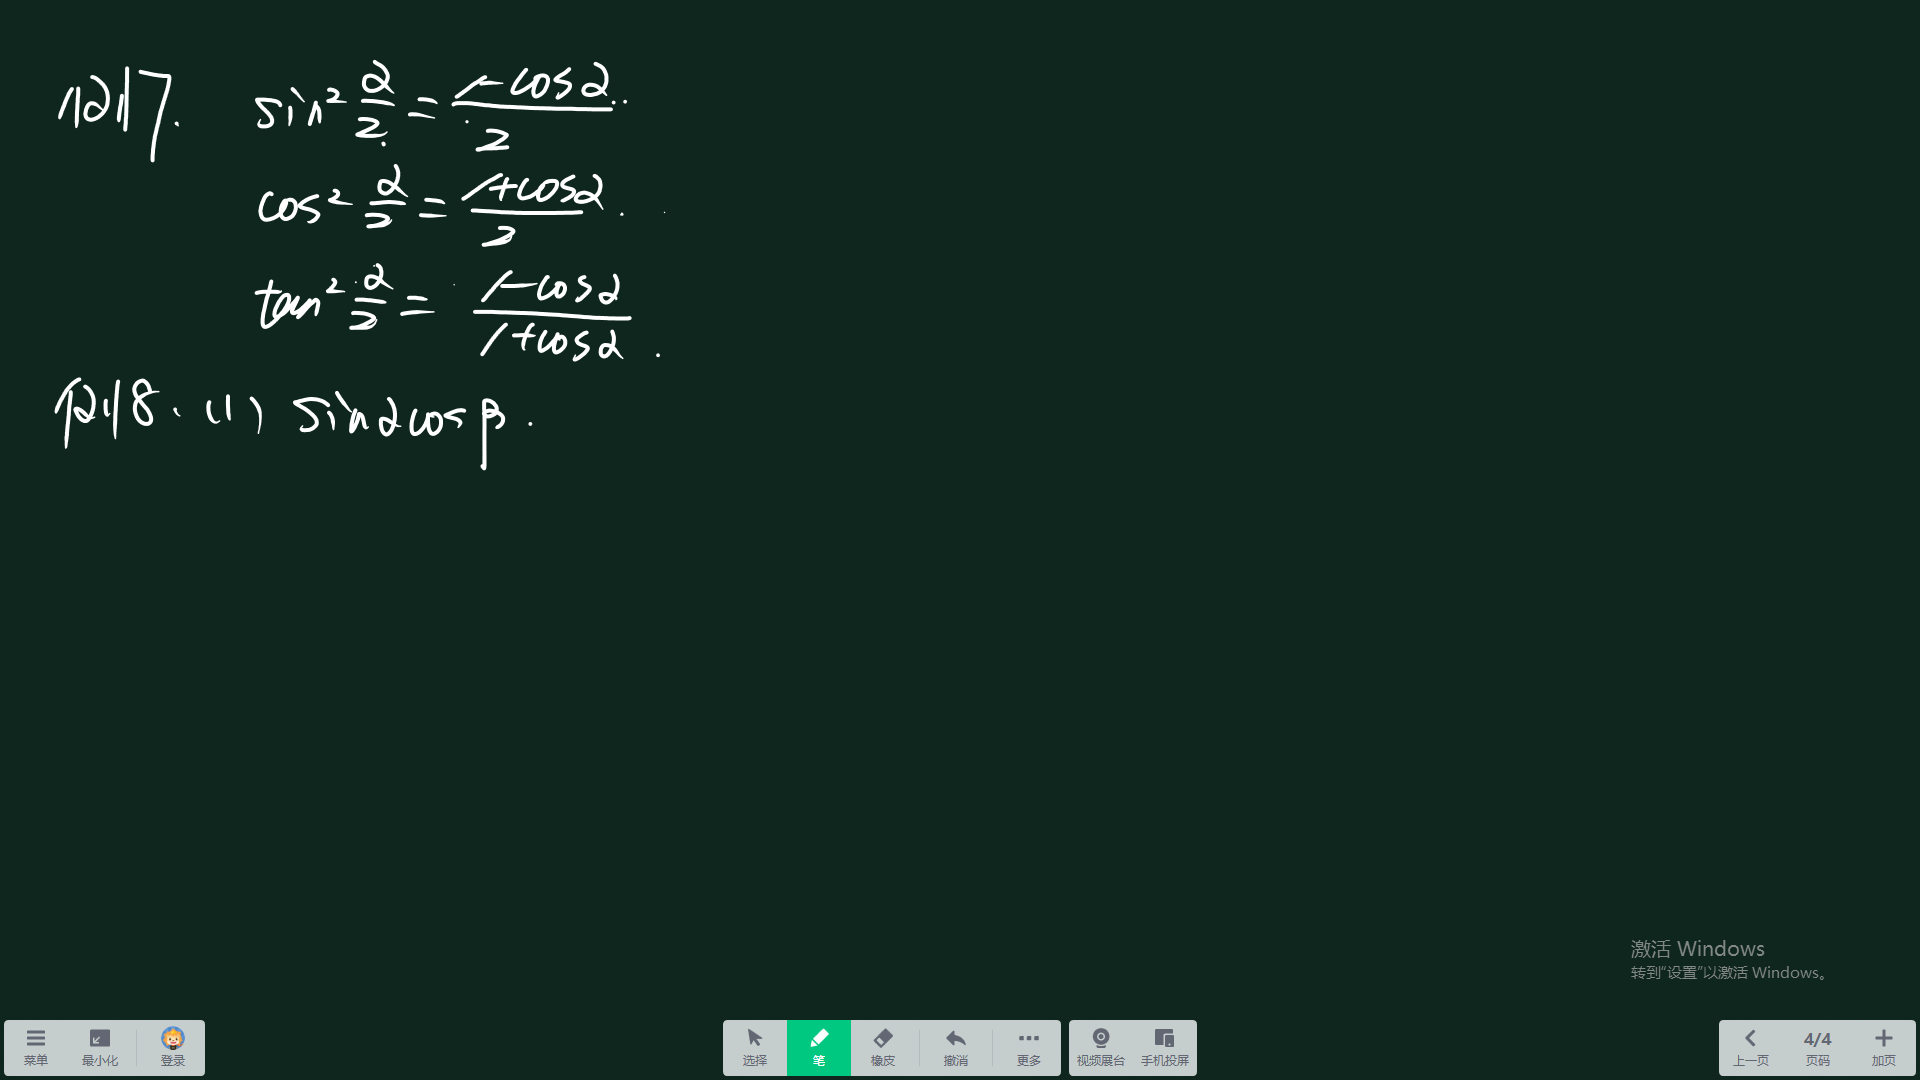 例7. sin² α/2 = (1-cosα)/2.
cos² α/2 = (1+cosα)/2.
tan² α/2 = (1-cosα)/(1+cosα).
例8. (1) sinαcosβ.
激活 Windows
转到“设置”以激活 Windows。
菜单 最小化 登录 选择 笔 橡皮 撤消 更多 视频展台 手机投屏 上一页 4/4 页码 加页